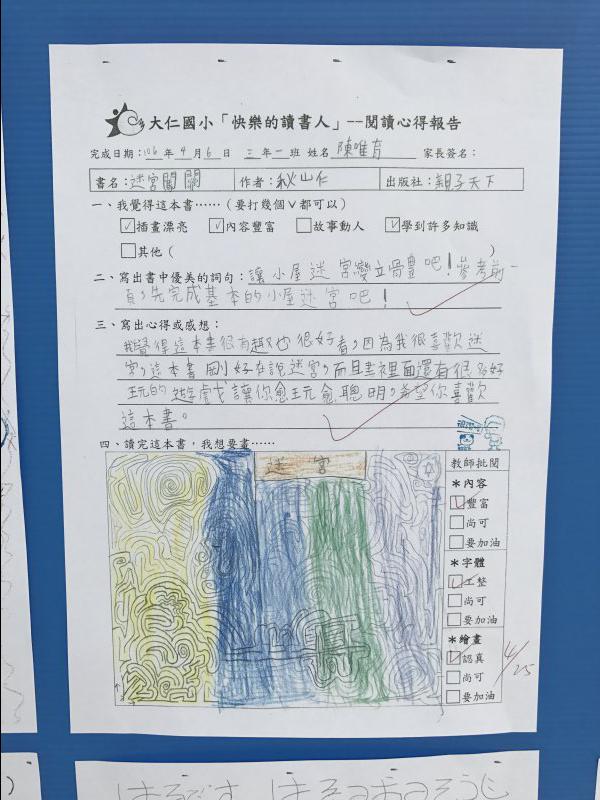 大仁國小「快樂的讀書人」--閱讀心得報告
完成日期:106年4月6日 三年一班 姓名 陳唯育 家長簽名:
書名:迷宮闖關 作者:秋山仁 出版社:親子天下
一、我覺得這本書……(要打幾個∨都可以)
☑插畫漂亮 ☑內容豐富 □故事動人 ☑學到許多知識
□其他( )
二、寫出書中優美的詞句:讓小屋迷宮變立體吧!參考前一
頁,先完成基本的小屋迷宮吧!
三、寫出心得或感想:
我覺得這本書很有趣,也很好看,因為我很喜歡迷
宮,這本書剛好在說迷宮,而且書裡面還有很多好
玩的遊戲讓你愈玩愈聰明,希望你喜歡
這本書。
四、讀完這本書,我想要畫……
迷宮
教師批閱
＊內容
☑豐富
□尚可
□要加油
＊字體
☑工整
□尚可
□要加油
＊繪畫
☑認真
□尚可
□要加油
4/25